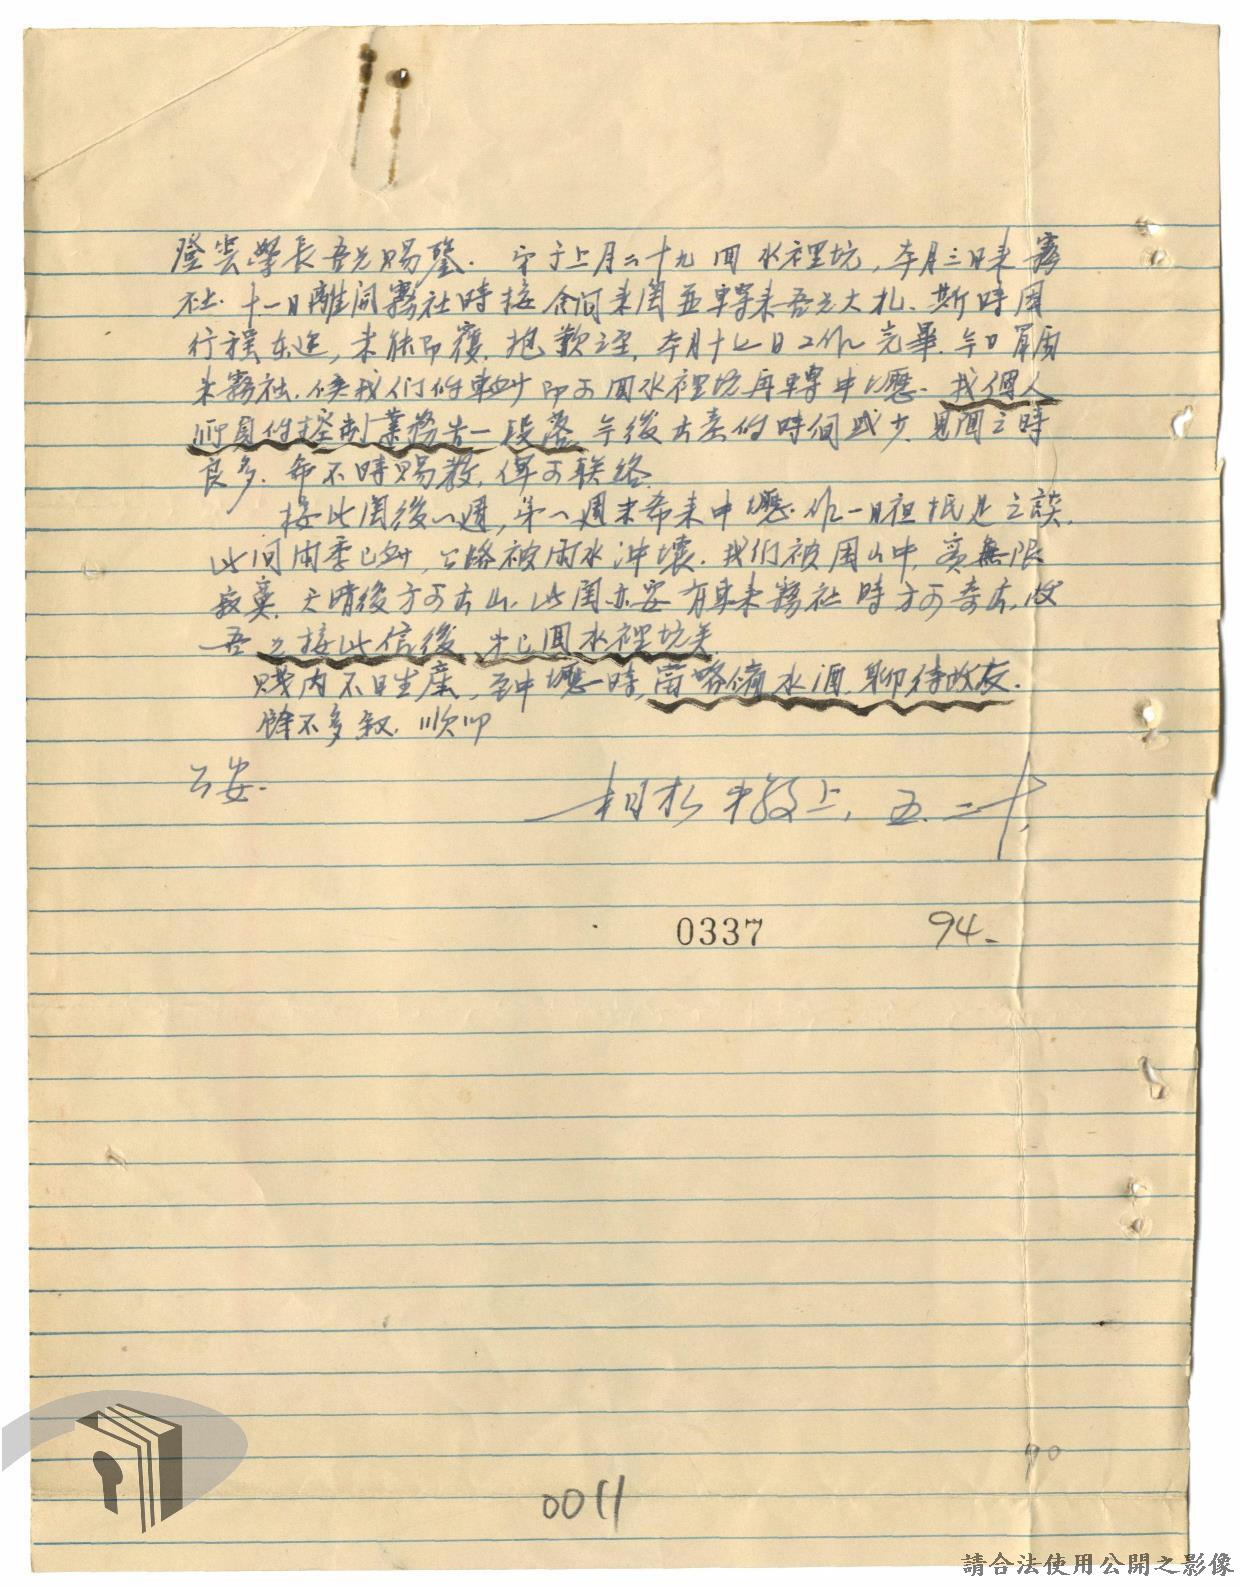 登雲學長吾兄賜鑒. 守于上月二十九回水裡坑, 本月三日來霧
社. 十一日離開霧社時接 來函並轉來吾兄大札. 斯時因
行程 , 未能即覆. 抱歉之至, 本月十七日工作完畢. 今日
來霧社. 候我们的車 即可回水裡坑再轉中壢. 我個人
的控制業務告一段落, 今後出差的時间或少, 見面之時
良多. 希不時賜教, 俾可联络.
接此函後一週, 第一週末希來中壢. 作一日 抵足之談.
此间雨季已 , 公路被雨水冲壞. 我们被困山中, 無限
寂寞. 天晴後方可出山. 此函亦要有車來霧社時方可寄出, 收
吾兄接此信後, 弟已回水裡坑矣.
賤内不日生產, 至中壢時, 當略備水酒. 聊待故友.
餘不多叙. 順叩
公安.
柏松 弟敬上. 五.二十.
0337 94.
90
0011
請合法使用公開之影像